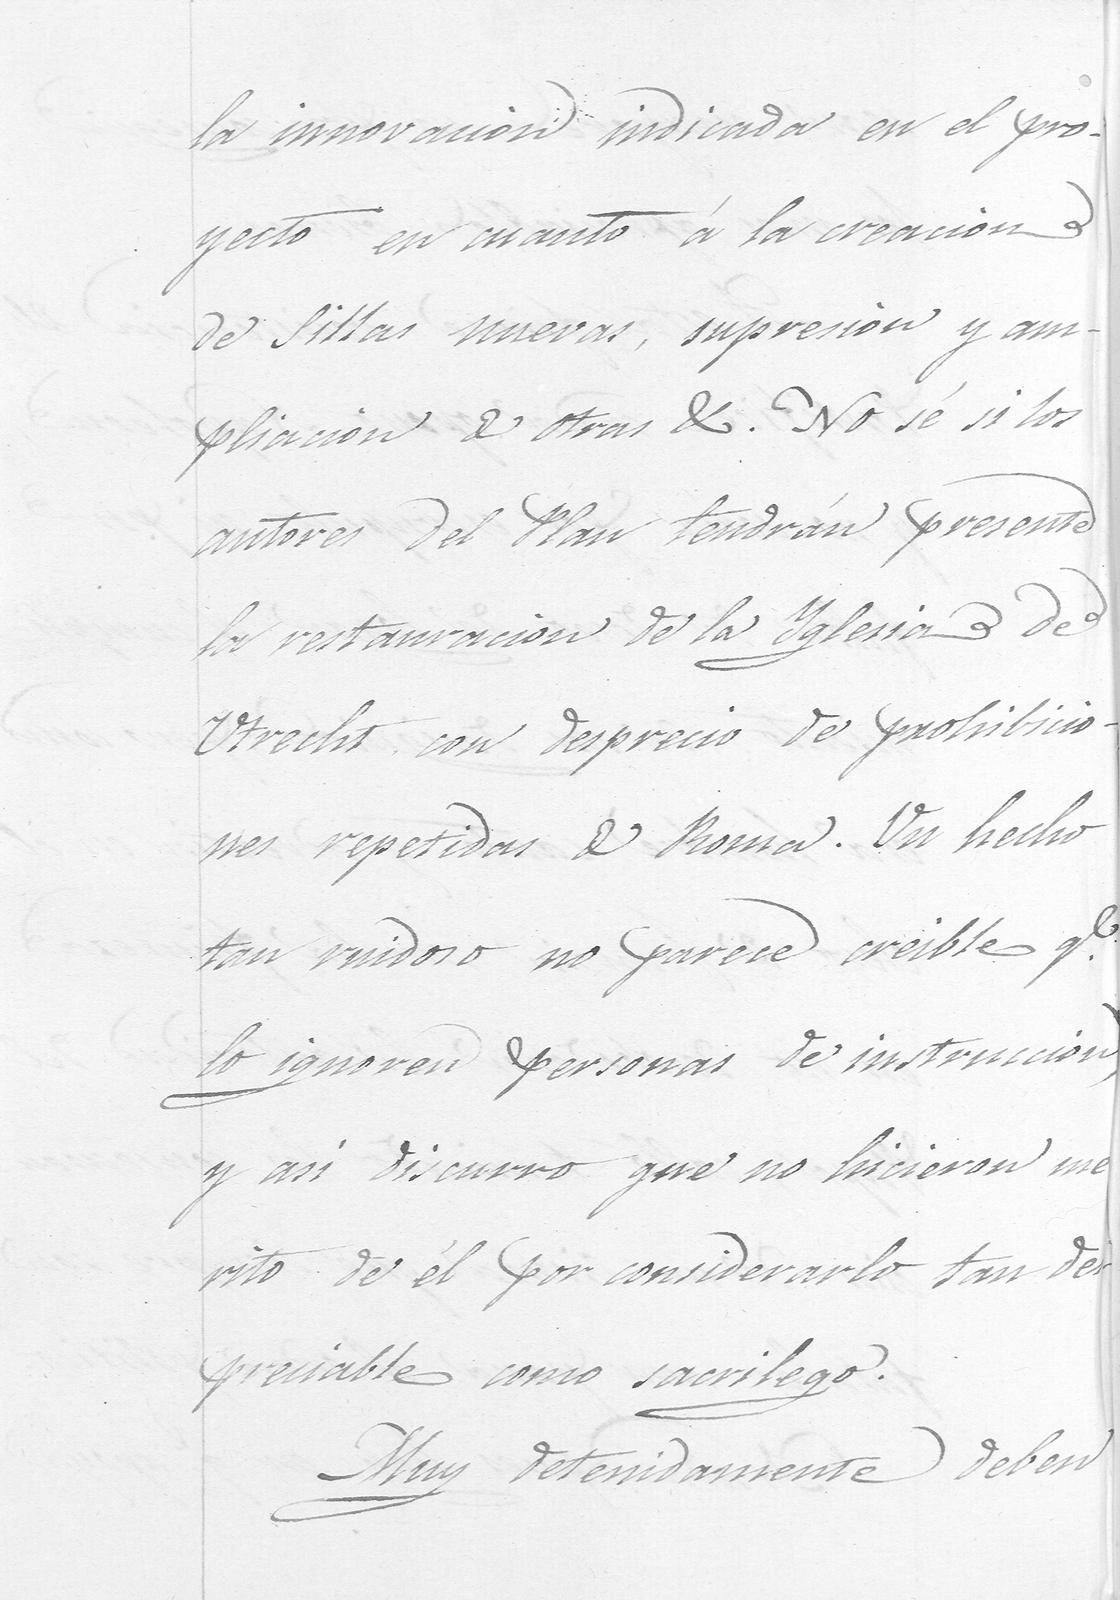 la innovacion indicada en el pro-
yecto en cuanto á la creacion
de Sillas nuevas, supresion y am-
pliacion de otras &. No sé si los
autores del Plan tendrán presente
la restauracion de la Yglesia de
Utrecht con desprecio de prohibicio-
nes repetidas de Roma. Un hecho
tan ruidoso no parece creible q.e
lo ignoren personas de instruccion,
y asi discurro que no hicieron me
rito de él por considerarlo tan des
preciable como sacrilego.
Muy detenidamente deben